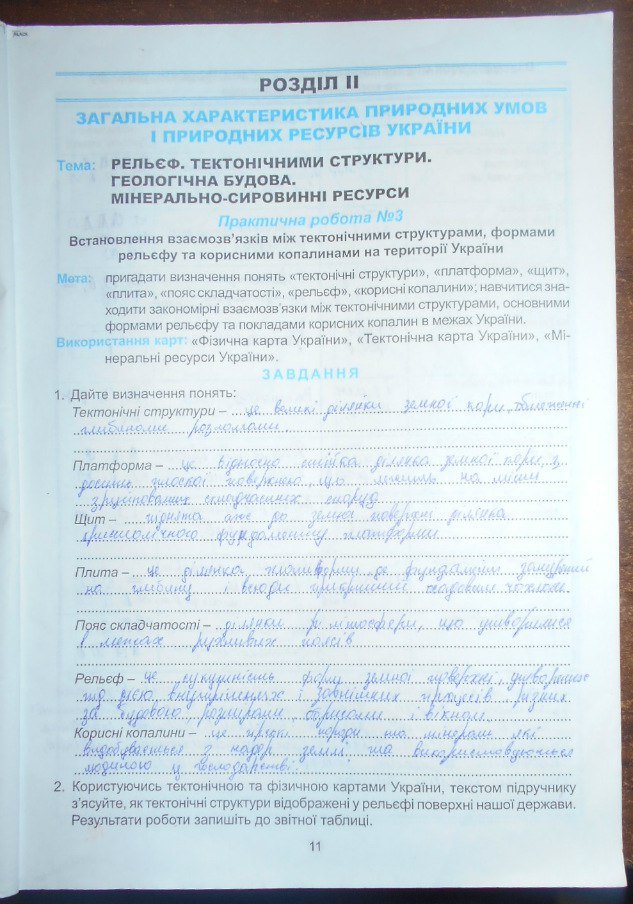 РОЗДІЛ ІІ
ЗАГАЛЬНА ХАРАКТЕРИСТИКА ПРИРОДНИХ УМОВ
І ПРИРОДНИХ РЕСУРСІВ УКРАЇНИ
Тема: РЕЛЬЄФ. ТЕКТОНІЧНИМИ СТРУКТУРИ.
ГЕОЛОГІЧНА БУДОВА.
МІНЕРАЛЬНО-СИРОВИННІ РЕСУРСИ
Практична робота №3
Встановлення взаємозв'язків між тектонічними структурами, формами
рельєфу та корисними копалинами на території України
Мета: пригадати визначення понять «тектонічні структури», «платформа», «щит»,
«плита», «пояс складчатості», «рельєф», «корисні копалини»; навчитися зна-
ходити закономірні взаємозв'язки між тектонічними структурами, основними
формами рельєфу та покладами корисних копалин в межах України.
Використання карт: «Фізична карта України», «Тектонічна карта України», «Мі-
неральні ресурси України».
ЗАВДАННЯ
1. Дайте визначення понять:
Тектонічні структури – це великі ділянки земної кори, обмежені
глибинними розломами
Платформа – це відносно стійка ділянка земної кори, з
досить плоскою поверхнею що лежить на місці
зруйнованих складчастих споруд
Щит – піднята аж до земної поверхні ділянка
кристалічного фундаменту платформи
Плита – це ділянка платформи де фундамент занурений
на глибину і всюди прикритий осадовим чохлом
Пояс складчатості – ділянки літосфери, що утворилися
в межах рухливих поясів
Рельєф – це сукупність форм земної поверхні, утворених
під дією внутрішніх і зовнішніх процесів різних
за будовою, розмірами, обрисами і віком
Корисні копалини – це гірські породи та мінерали які
видобуваються з надр землі, та використовуються
людиною у господарстві.
2. Користуючись тектонічною та фізичною картами України, текстом підручнику
з'ясуйте, як тектонічні структури відображені у рельєфі поверхні нашої держави.
Результати роботи запишіть до звітної таблиці.
11